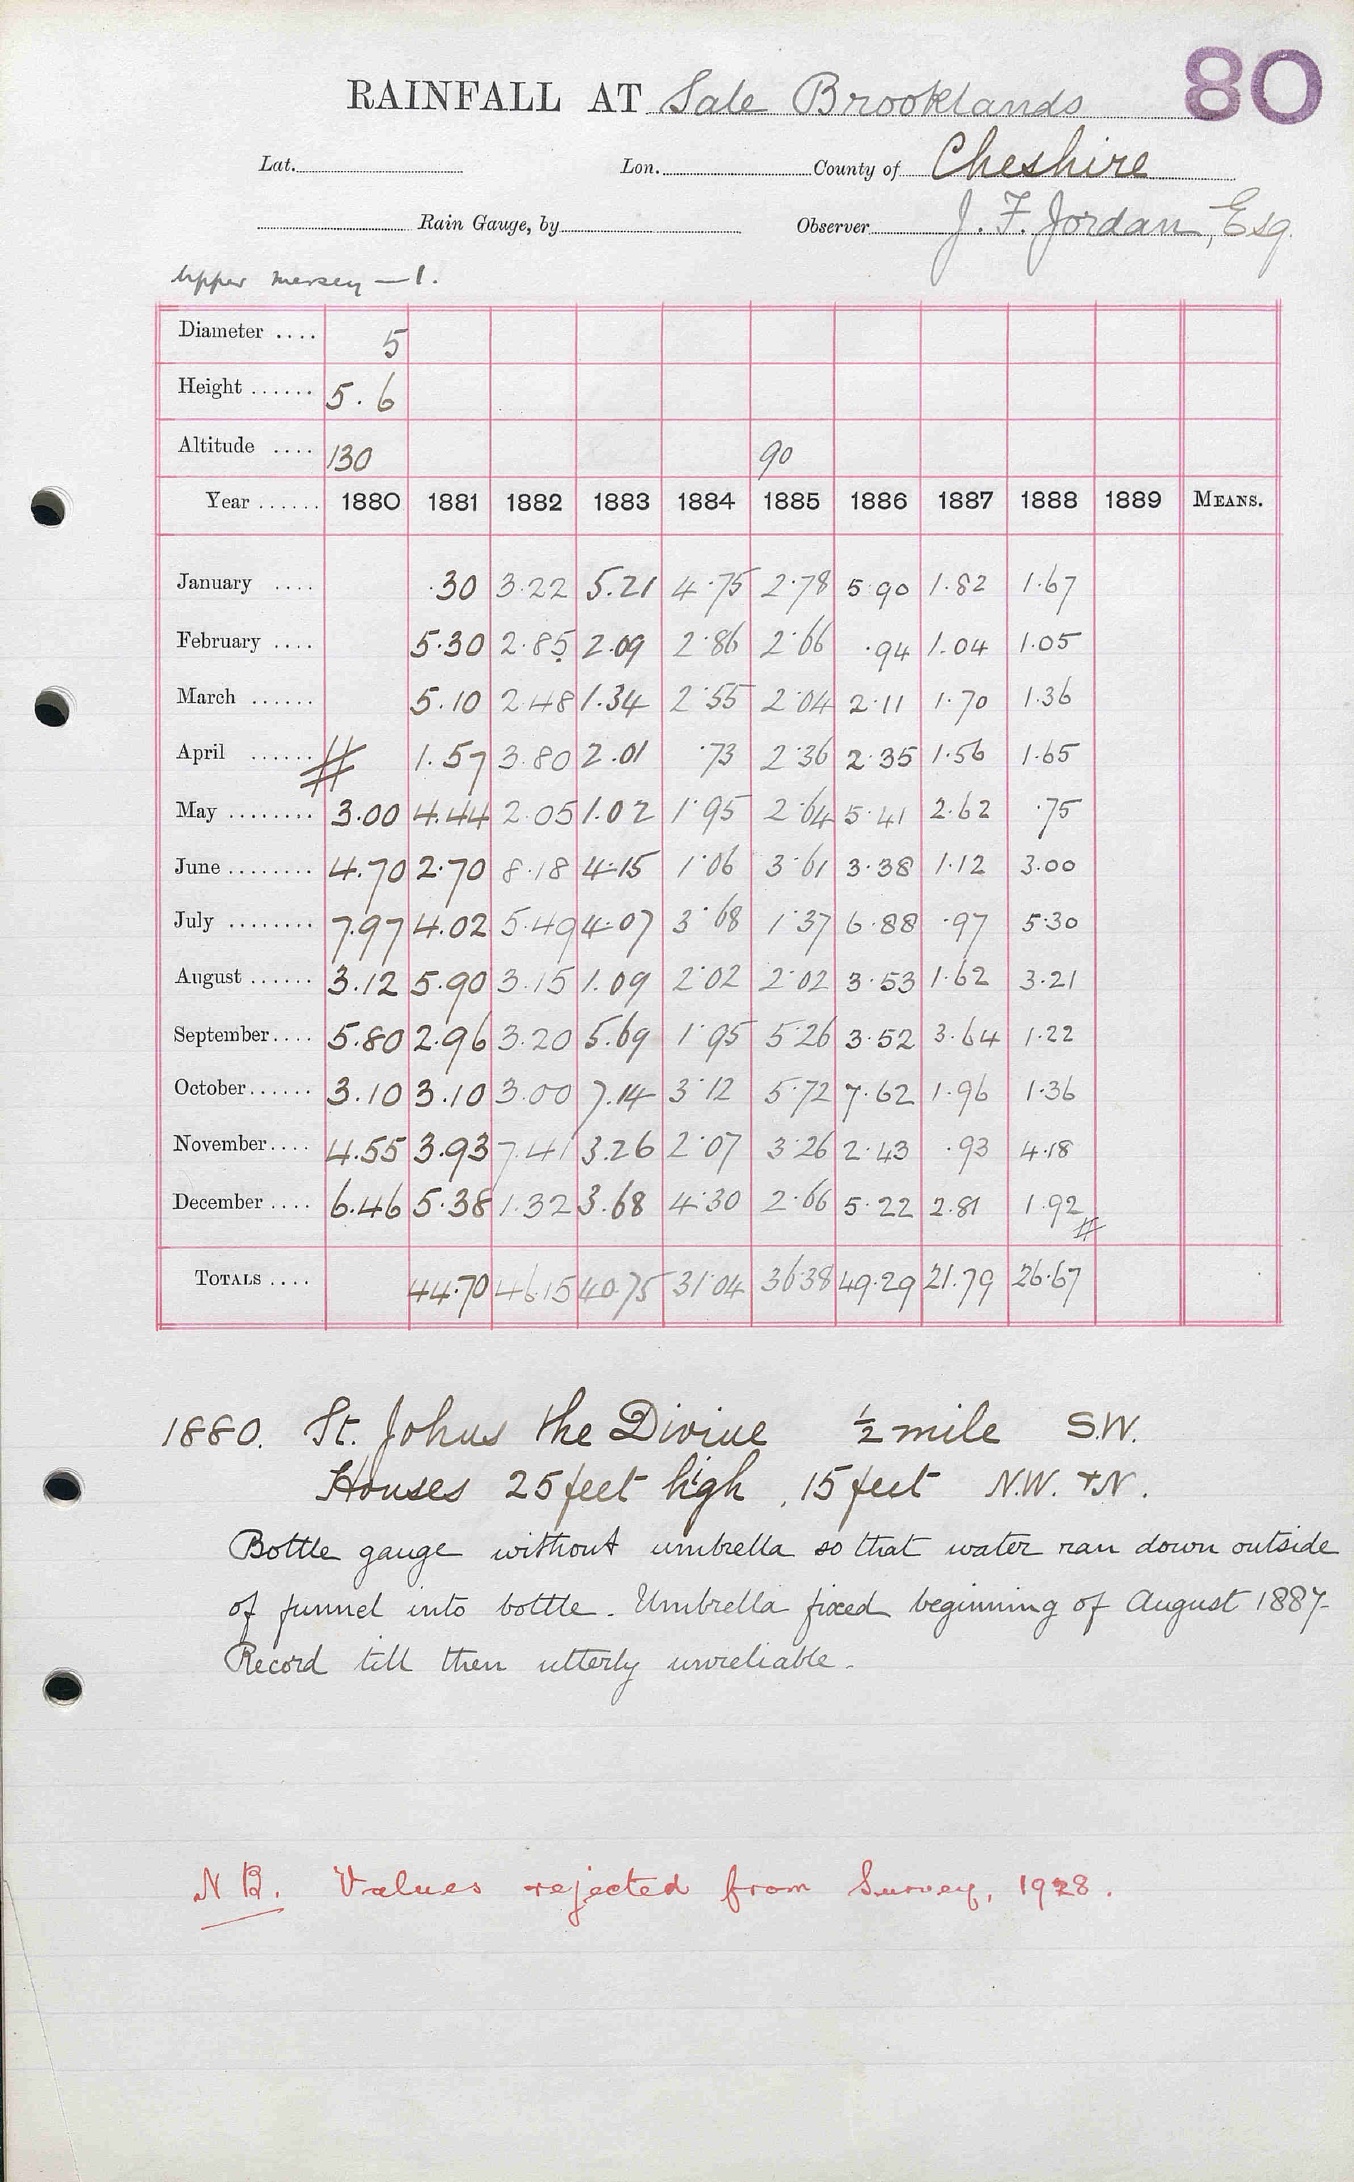 80
RAINFALL AT Sale Brooklands
Lat. Lon. County of Cheshire
Rain Gauge, by Observer J. F. Jordan, Esq.
Upper Mersey — 1.
Diameter .... 5
Height ...... 5.6
Altitude .... 130 90
Year ...... 1880 1881 1882 1883 1884 1885 1886 1887 1888 1889 MEANS.
January .... .30 3.22 5.21 4.75 2.78 5.90 1.82 1.67
February .... 5.30 2.85 2.09 2.86 2.66 .94 1.04 1.05
March ...... 5.10 2.48 1.34 2.55 2.04 2.11 1.70 1.36
April ...... # 1.57 3.80 2.01 .73 2.36 2.35 1.56 1.65
May ........ 3.00 4.44 2.05 1.02 1.95 2.64 5.41 2.62 .75
June ........ 4.70 2.70 8.18 4.15 1.06 3.61 3.38 1.12 3.00
July ........ 7.97 4.02 5.49 4.07 3.68 1.37 6.88 .97 5.30
August ...... 3.12 5.90 3.15 1.09 2.02 2.02 3.53 1.62 3.21
September.... 5.80 2.96 3.20 5.69 1.95 5.26 3.52 3.64 1.22
October...... 3.10 3.10 3.00 7.14 3.12 5.72 7.62 1.96 1.36
November.... 4.55 3.93 7.41 3.26 2.07 3.26 2.43 .93 4.18
December .... 6.46 5.38 1.32 3.68 4.30 2.66 5.22 2.81 1.92 #
TOTALS .... 44.70 46.15 40.75 31.04 36.38 49.29 21.79 26.67
1880. St. Johns the Divine ½ mile S.W.
Houses 25 feet high, 15 feet N.W. + N.
Bottle gauge without umbrella so that water ran down outside
of funnel into bottle. Umbrella fixed beginning of August 1887-
Record till then utterly unreliable.
N B. Values rejected from Survey, 1928.